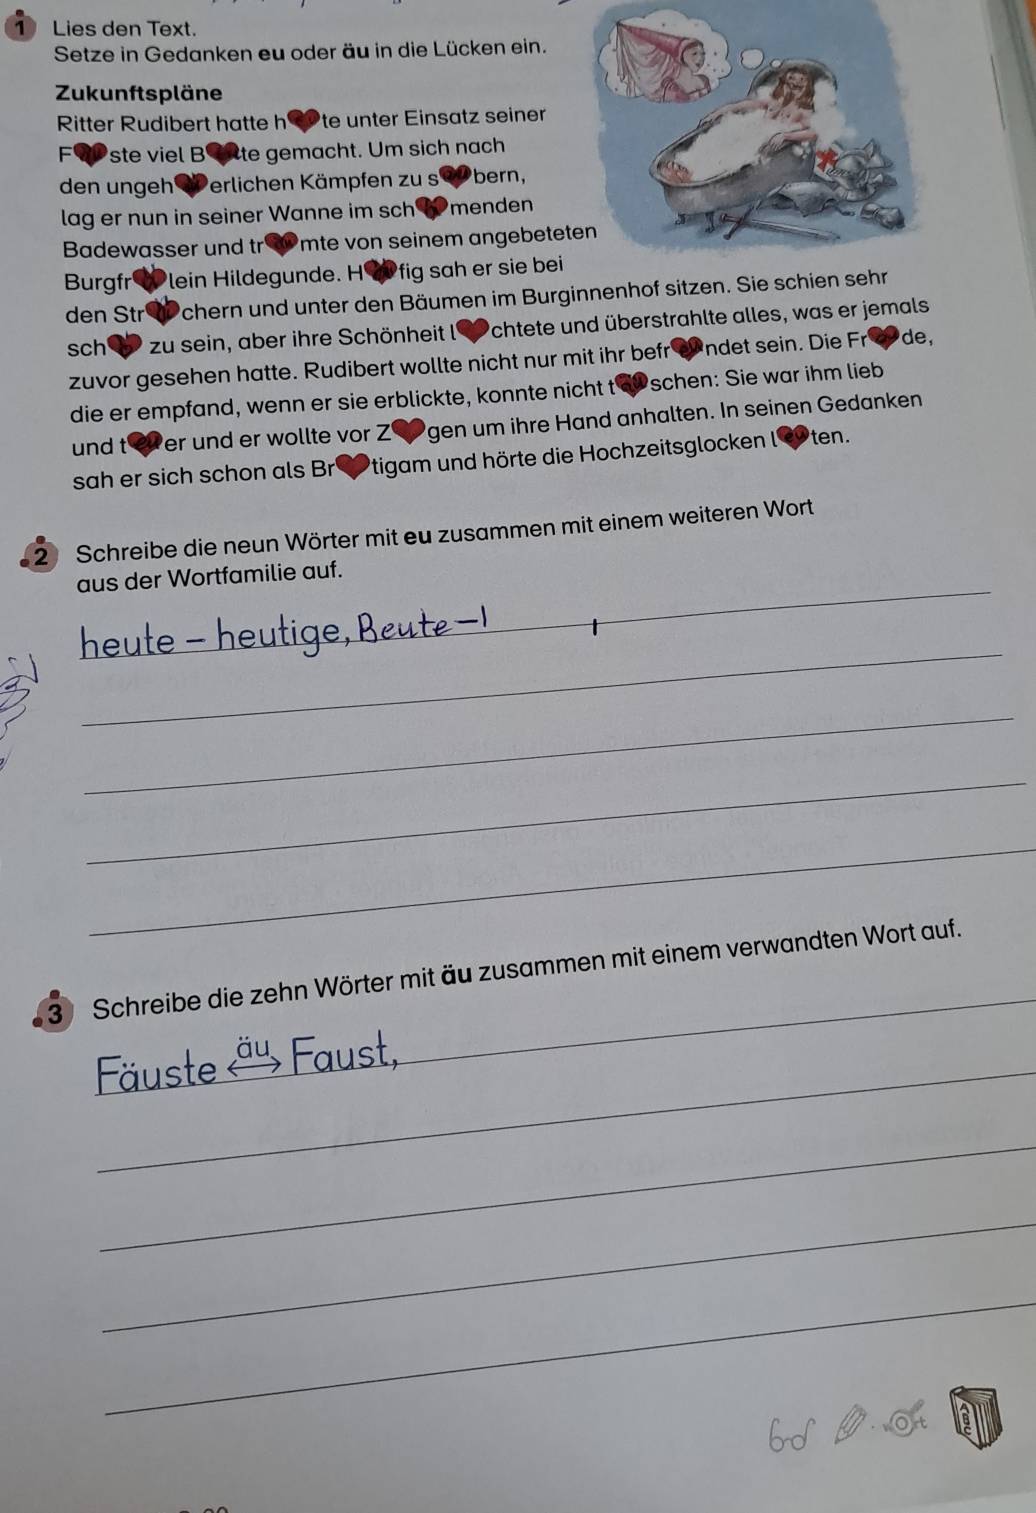 1 Lies den Text.
Setze in Gedanken eu oder äu in die Lücken ein.
Zukunftspläne
Ritter Rudibert hatte h eu te unter Einsatz seiner
F äu ste viel B te gemacht. Um sich nach
den ungeh erlichen Kämpfen zu s bern,
lag er nun in seiner Wanne im sch menden
Badewasser und tr äu mte von seinem angebeteten
Burgfr lein Hildegunde. H fig sah er sie bei
den Str chern und unter den Bäumen im Burginnenhof sitzen. Sie schien sehr
sch zu sein, aber ihre Schönheit l chtete und überstrahlte alles, was er jemals
zuvor gesehen hatte. Rudibert wollte nicht nur mit ihr befr eu ndet sein. Die Fr de,
die er empfand, wenn er sie erblickte, konnte nicht t äu schen: Sie war ihm lieb
und t eu er und er wollte vor Z gen um ihre Hand anhalten. In seinen Gedanken
sah er sich schon als Br tigam und hörte die Hochzeitsglocken l eu ten.
2 Schreibe die neun Wörter mit eu zusammen mit einem weiteren Wort
aus der Wortfamilie auf.
heute – heutige, Beute –
3 Schreibe die zehn Wörter mit äu zusammen mit einem verwandten Wort auf.
Fäuste äu Faust,
ABC